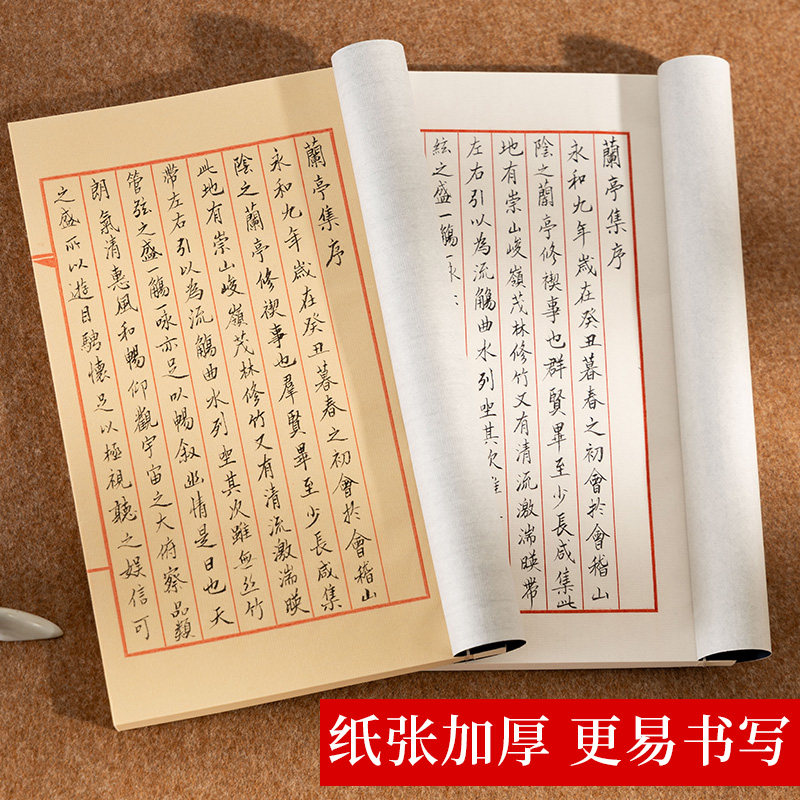 蘭亭集序
永和九年歲在癸丑暮春之初會於會稽山
陰之蘭亭修禊事也羣賢畢至少長咸集
此地有崇山峻嶺茂林修竹又有清流激湍暎
帶左右引以為流觴曲水列坐其次雖無丝竹
管弦之盛一觴一詠亦足以暢敘幽情是日也天
朗氣清惠風和暢仰觀宇宙之大俯察品類
之盛所以遊目騁懷足以極視聽之娱信可
蘭亭集序
永和九年歲在癸丑暮春之初會於會稽山
陰之蘭亭修禊事也群賢畢至少長咸集此
地有崇山峻嶺茂林修竹又有清流激湍暎帶
左右引以為流觴曲水列坐其次
絃之盛一觴一
纸张加厚 更易书写